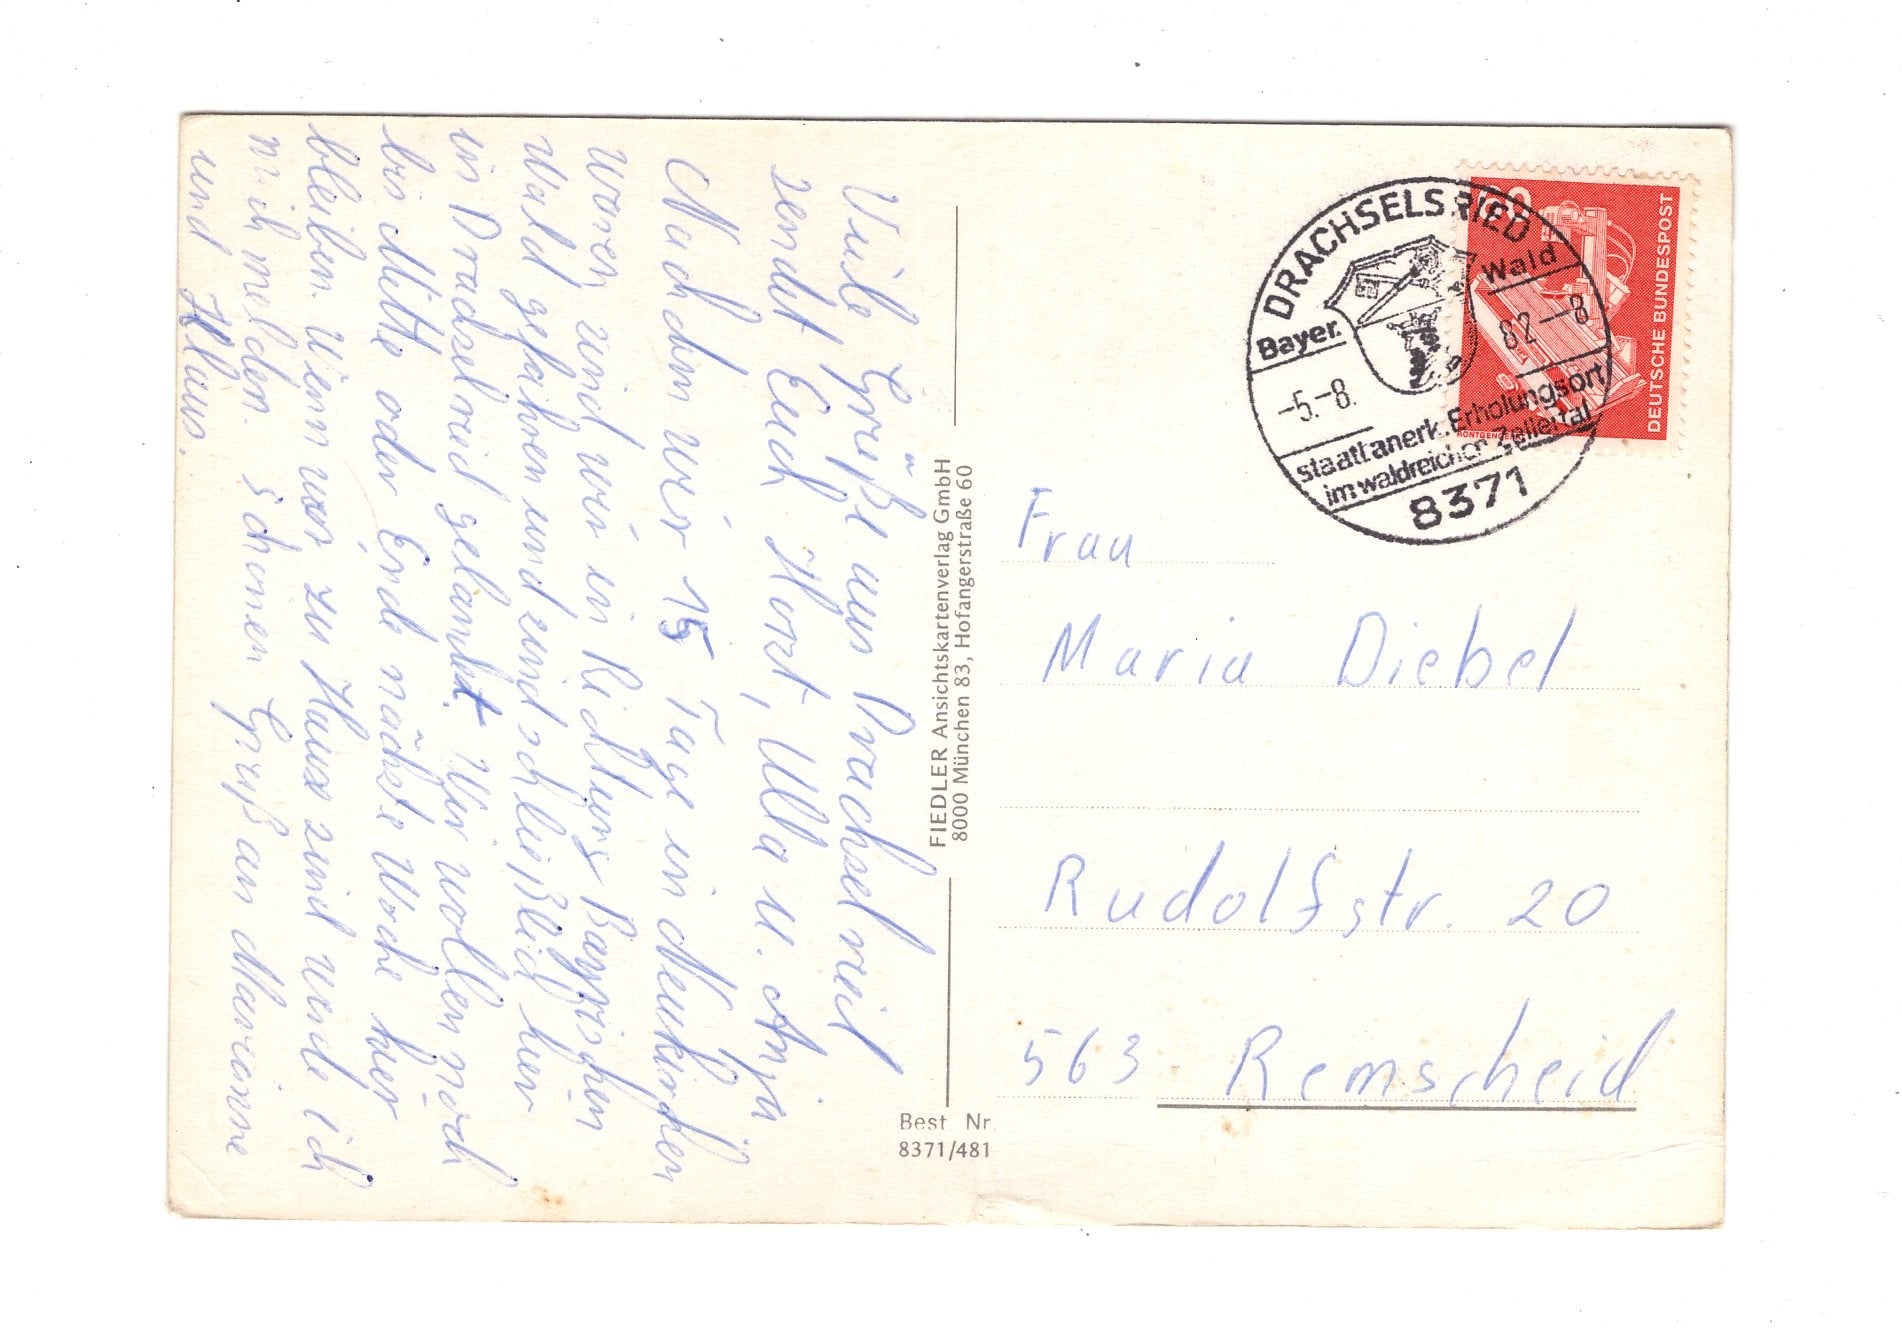 Viele Grüße aus Drachselsried
sendet Euch Horst, Ulla u. Anja
Nachdem wir 15 Tage in Neukirchen
waren sind wir in Richtung Bayrischen
Wald gefahren und sind schließlich hier
in Drachselried gelandet. Wir wollen noch
bis Mitte oder Ende nächste Woche hier
bleiben. Wenn wir zu Haus sind werde ich
mich melden. Schönen Gruß an Marianne
und Klaus.
FIEDLER Ansichtskartenverlag GmbH
8000 München 83, Hofangerstraße 60
Best. Nr.
8371/481
DRACHSELSRIED
Bayer. Wald
-5.-8. 82--8
staatl.anerk.Erholungsort
im waldreichen Zellertal
8371
DEUTSCHE BUNDESPOST
Frau
Maria Diebel
Rudolfstr. 20
563 Remscheid